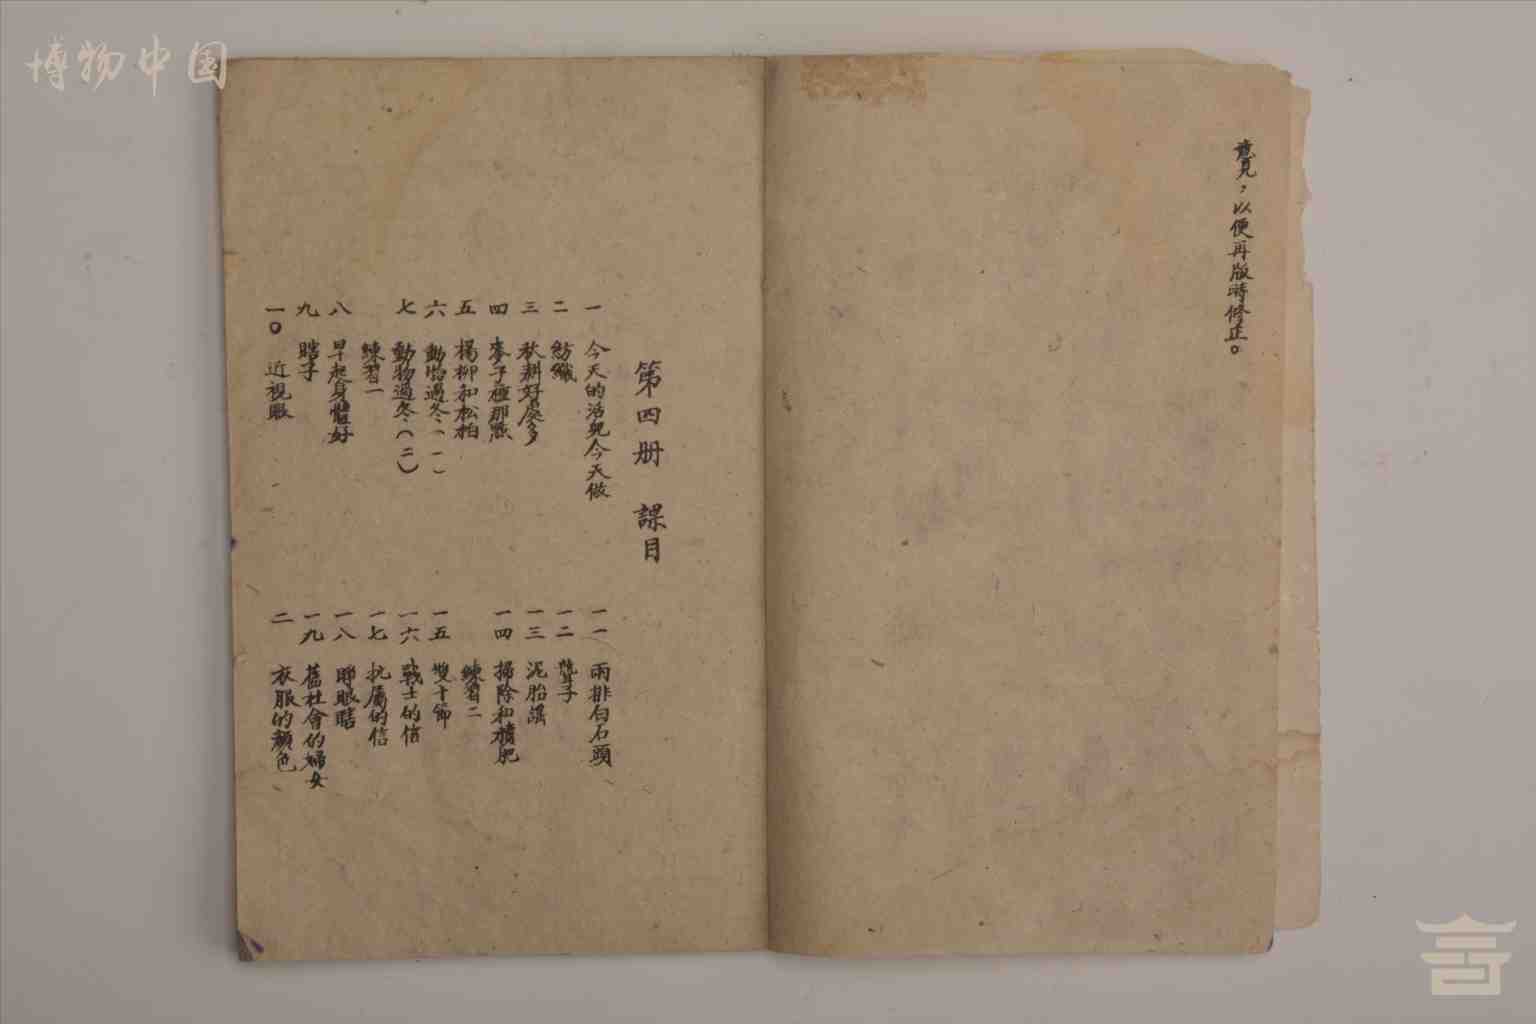 博物中国
意見，以便再版時修正。
第四册 課目
一 今天的活兒今天做
二 紡織
三 秋耕好處多
四 麥子種那熟
五 楊柳和松柏
六 動物過冬（一）
七 動物過冬（二）
練習一
八 早起身體好
九 瞎子
一〇 近視眼
一一 兩排白石頭
一二 聾子
一三 泥胎謠
一四 掃除和積肥
練習二
一五 雙十節
一六 戰士的信
一七 抗屬的信
一八 眼瞎
一九 舊社會的婦女
二 衣服的顏色